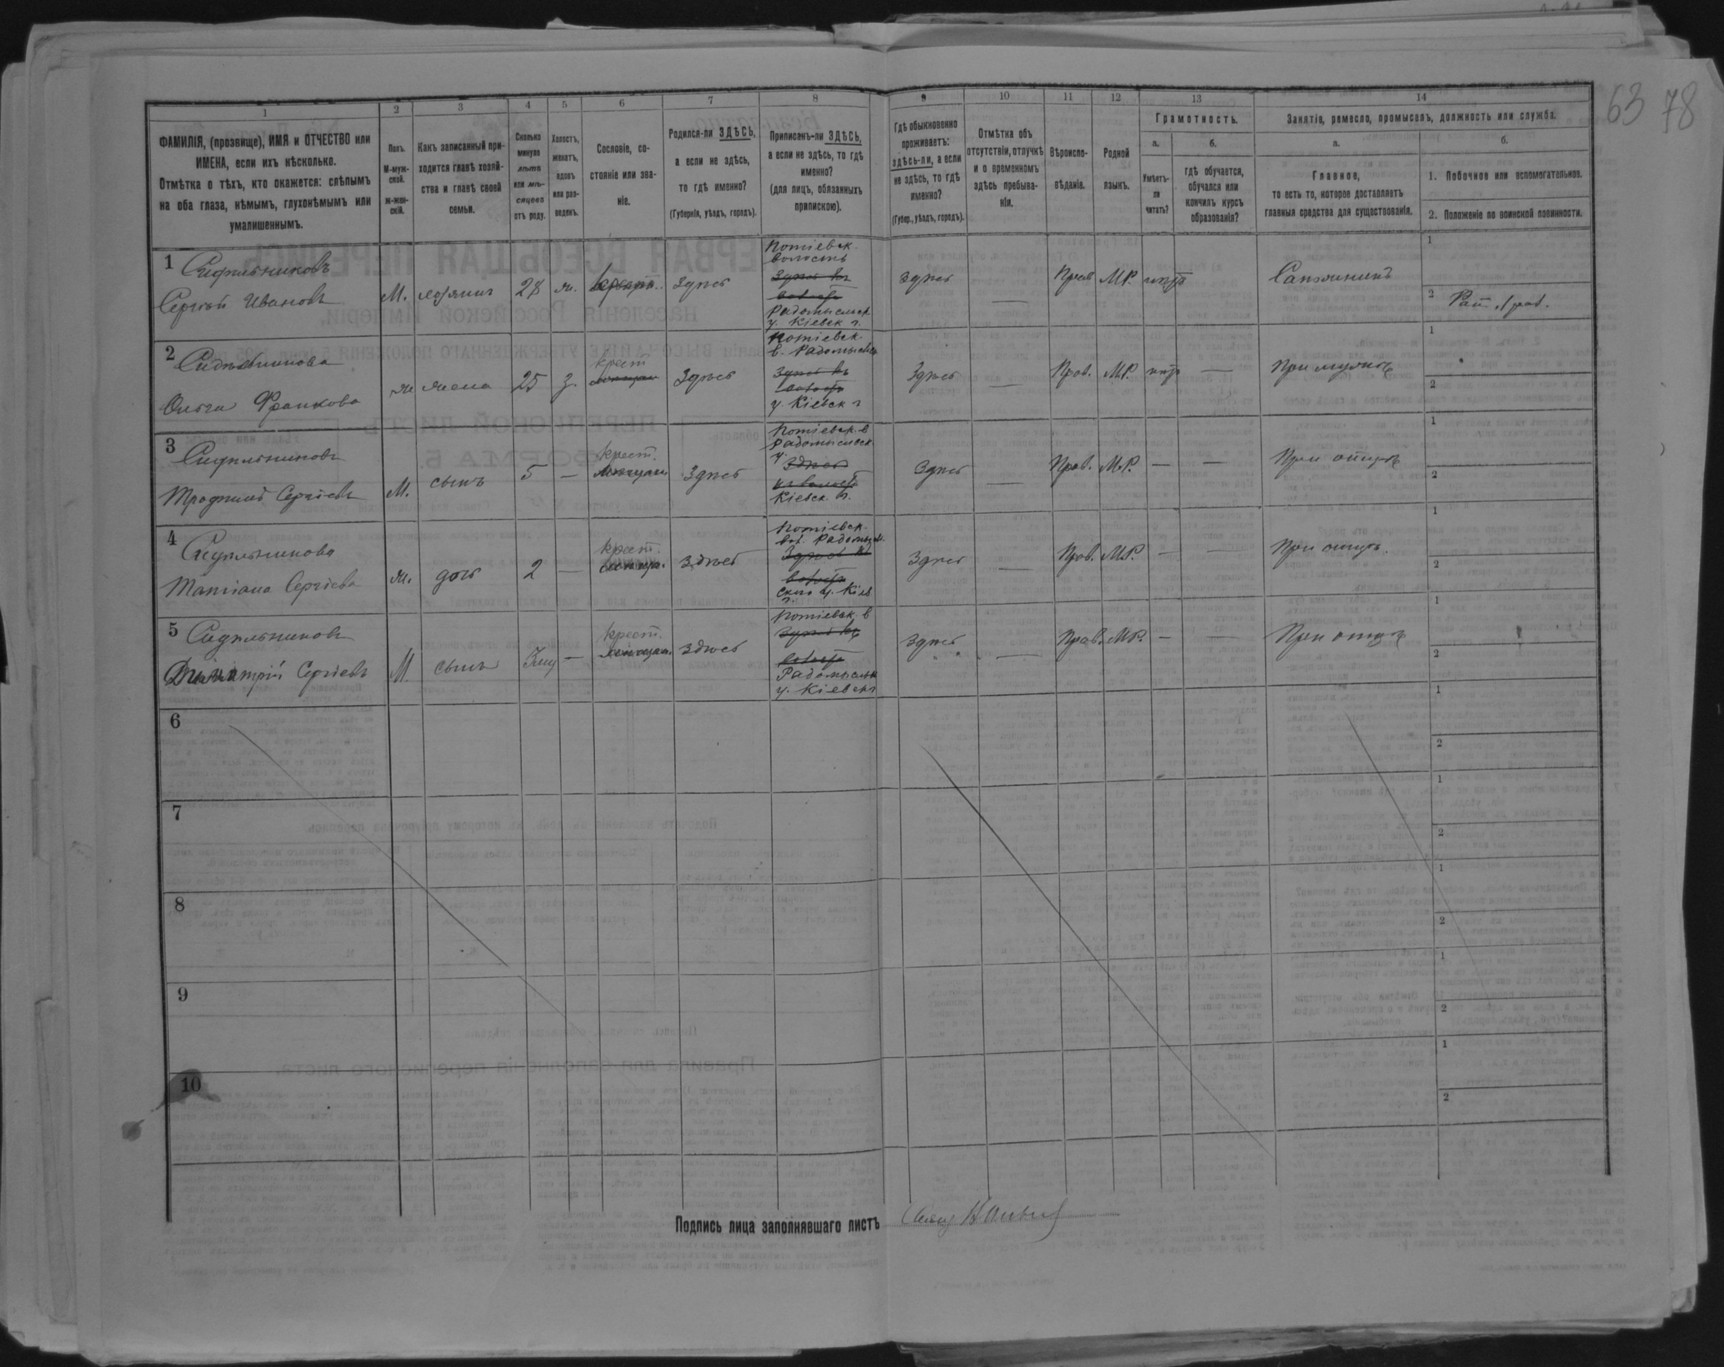 63 78
1 2 3 4 5 6 7 8 9 10 11 12 13 14
ФАМИЛІЯ, (прозвище), ИМЯ и ОТЧЕСТВО или
ИМЕНА, если ихъ нѣсколько.
Отмѣтка о тѣхъ, кто окажется: слѣпымъ
на оба глаза, нѣмымъ, глухонѣмымъ или
умалишеннымъ.
Полъ.
М-муж-
ской.
ж-жен-
скій.
Какъ записанный при-
ходится главѣ хозяй-
ства и главѣ своей
семьи.
Сколько
минуло
лѣтъ
или мѣ-
сяцевъ
отъ роду.
Холостъ,
женатъ,
вдовъ
или раз-
веденъ.
Сословіе, со-
стояніе или зва-
ніе.
Родился-ли ЗДѢСЬ,
а если не здѣсь,
то гдѣ именно?
(Губернія, уѣздъ, городъ).
Приписанъ-ли ЗДѢСЬ,
а если не здѣсь, то гдѣ
именно?
(для лицъ, обязанныхъ
припискою).
Гдѣ обыкновенно
проживаетъ:
здѣсь-ли, а если
не здѣсь, то гдѣ
именно?
(Губер., уѣздъ, городъ).
Отмѣтка объ
отсутствіи, отлучкѣ
и о временномъ
здѣсь пребыва-
ніи.
Вѣроиспо-
вѣданіе.
Родной
языкъ.
Грамотность.
а.
Умѣетъ-
ли
читать?
б.
гдѣ обучается,
обучался или
кончилъ курсъ
образованія?
Занятіе, ремесло, промыселъ, должность или служба.
а.
Главное,
то есть то, которое доставляетъ
главныя средства для существованія.
б.
1. Побочное или вспомогательное.
2. Положеніе по воинской повинности.
1 Сидѣльниковъ
Сергѣй Ивановъ
М. хозяинъ 28 ж. крест. Здѣсь
Потіевск.
волость
Здѣсь въ
волость
Радомысльск.
у. Кіевск г.
здѣсь — Прав М.Р. нѣтъ Сапожникъ
1
2
2 Сидѣльникова
Ольга Франкова
ж жена 25 з. крест Здѣсь
Потіевск.
в. Радомысльск
Здѣсь въ
волость
у Кіевск г
Здѣсь — Прав. М.Р. нѣтъ — При мужѣ
1
2
3 Сидѣльниковъ
Трофимъ Сергѣевъ
М. сынъ 5 — крест. Здѣсь
Потіевск. в
Радомысльск
у.
Здѣсь
въ волость
Кіевск. г.
Здѣсь — Прав. М.Р. — — При отцѣ
1
2
4 Сидѣльникова
Татіана Сергѣева
ж. дочь 2 — крест. здѣсь
Потіевск.
вол. Радомысль
Здѣсь въ
волость
скаго у. Кіев
г.
Здѣсь — Прав. М.Р. — — При отцѣ.
1
2
5 Сидѣльниковъ
Димитрій Сергѣевъ
М. сынъ — крест. здѣсь
Потіевск. в
Здѣсь въ
волость
Радомысльск
у. Кіевск г
здѣсь — Прав. М.Р. — — При отцѣ
1
2
6
1
2
7
1
2
8
1
2
9
1
2
10
1
2
Подпись лица заполнявшаго листъ